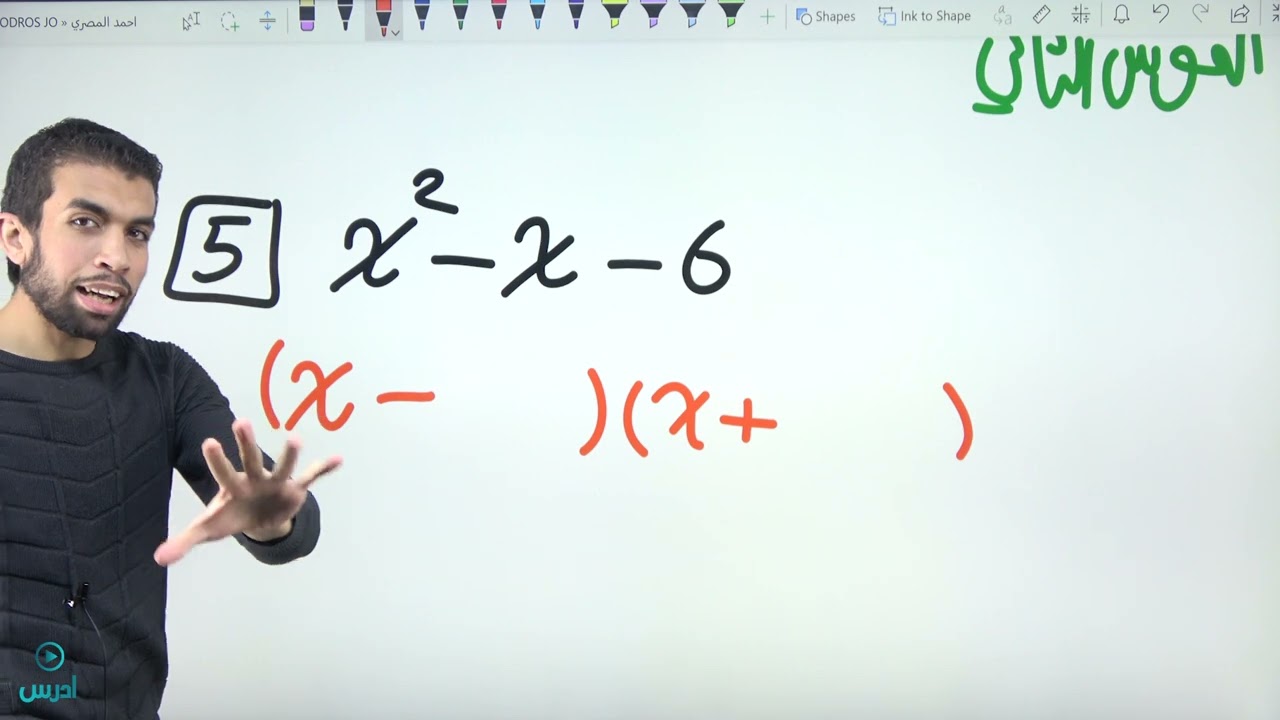 ODROS JO » احمد المصري
Shapes
Ink to Shape
القوس الثاني
5 x² - x - 6
(x - )(x + )
ادرس